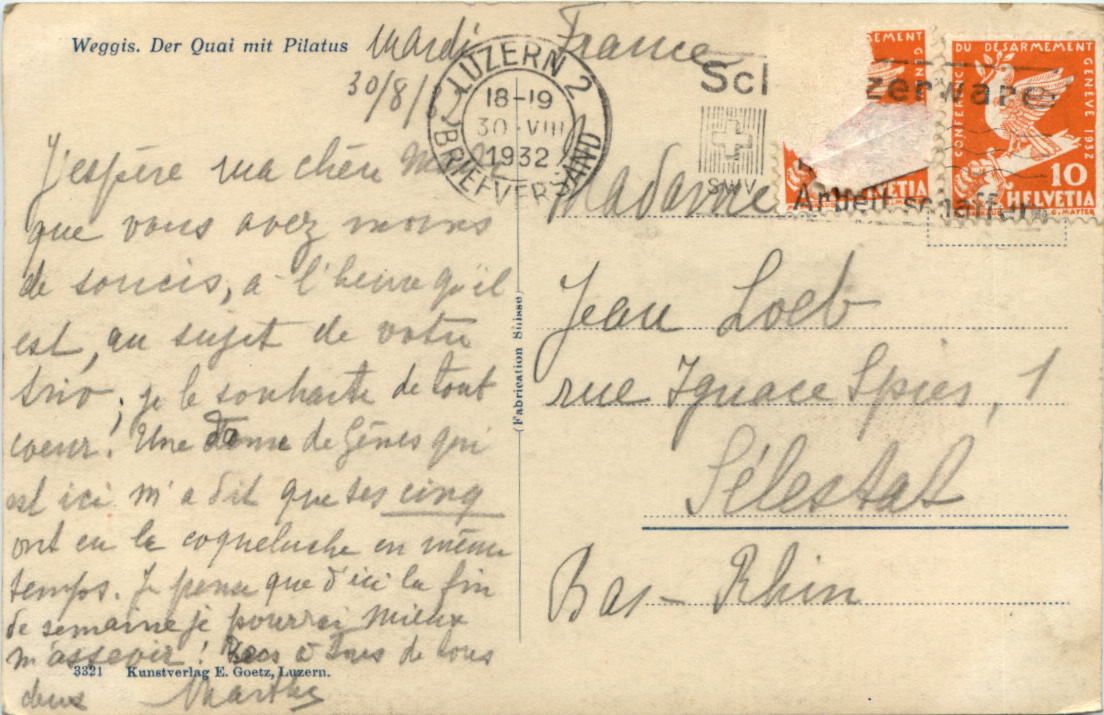 Weggis. Der Quai mit Pilatus
Mardi
30/8/
France
LUZERN 2
18-19
30 VIII
1932
BRIEFVERSAND
Scl
zerware
SWV
Arbeit schaffen
SEMENT GENÈVE
HELVETIA
CONFERENCE DU DÉSARMEMENT GENÈVE 1932
10
HELVETIA
J'espère ma chère
que vous avez moins
de soucis, à l'heure qu'il
est, au sujet de votre
trio; je le souhaite de tout
coeur. Une dame de Gênes qui
est ici m'a dit que ses cinq
ont eu la coqueluche en même
temps. Je pense que d'ici la fin
de semaine je pourrai mieux
m'asseoir! à tous de tous
deux Marthe
3321 Kunstverlag E. Goetz, Luzern.
(Fabrication Suisse)
Madame
Jean Loeb
rue Ignace Spies, 1
Sélestat
Bas-Rhin